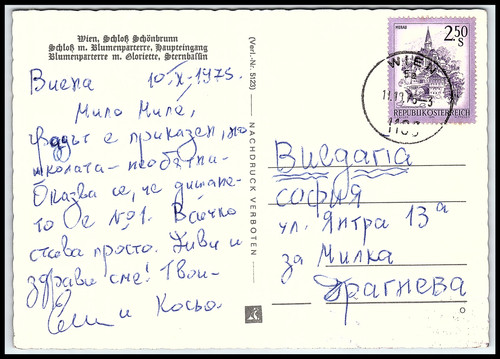 Wien, Schloß Schönbrunn
Schloß m. Blumenparterre, Haupteingang
Blumenparterre m. Gloriette, Sternbassin
Виена 10-X-1975.
Мила Миле,
Градът е приказен, но
школата - необятни.
Оказва се, че диша не-
то е №1. Всичко
става просто. Живи и
здрави сме! Твои-
и Косьо.
(Verl.-Nr. 51/23)
NACHDRUCK VERBOTEN
MURAU
2.50
S
REPUBLIK ÖSTERREICH
WIEN
Bulgaria
София
ул. Янтра 13а
за Милка
Драгнева